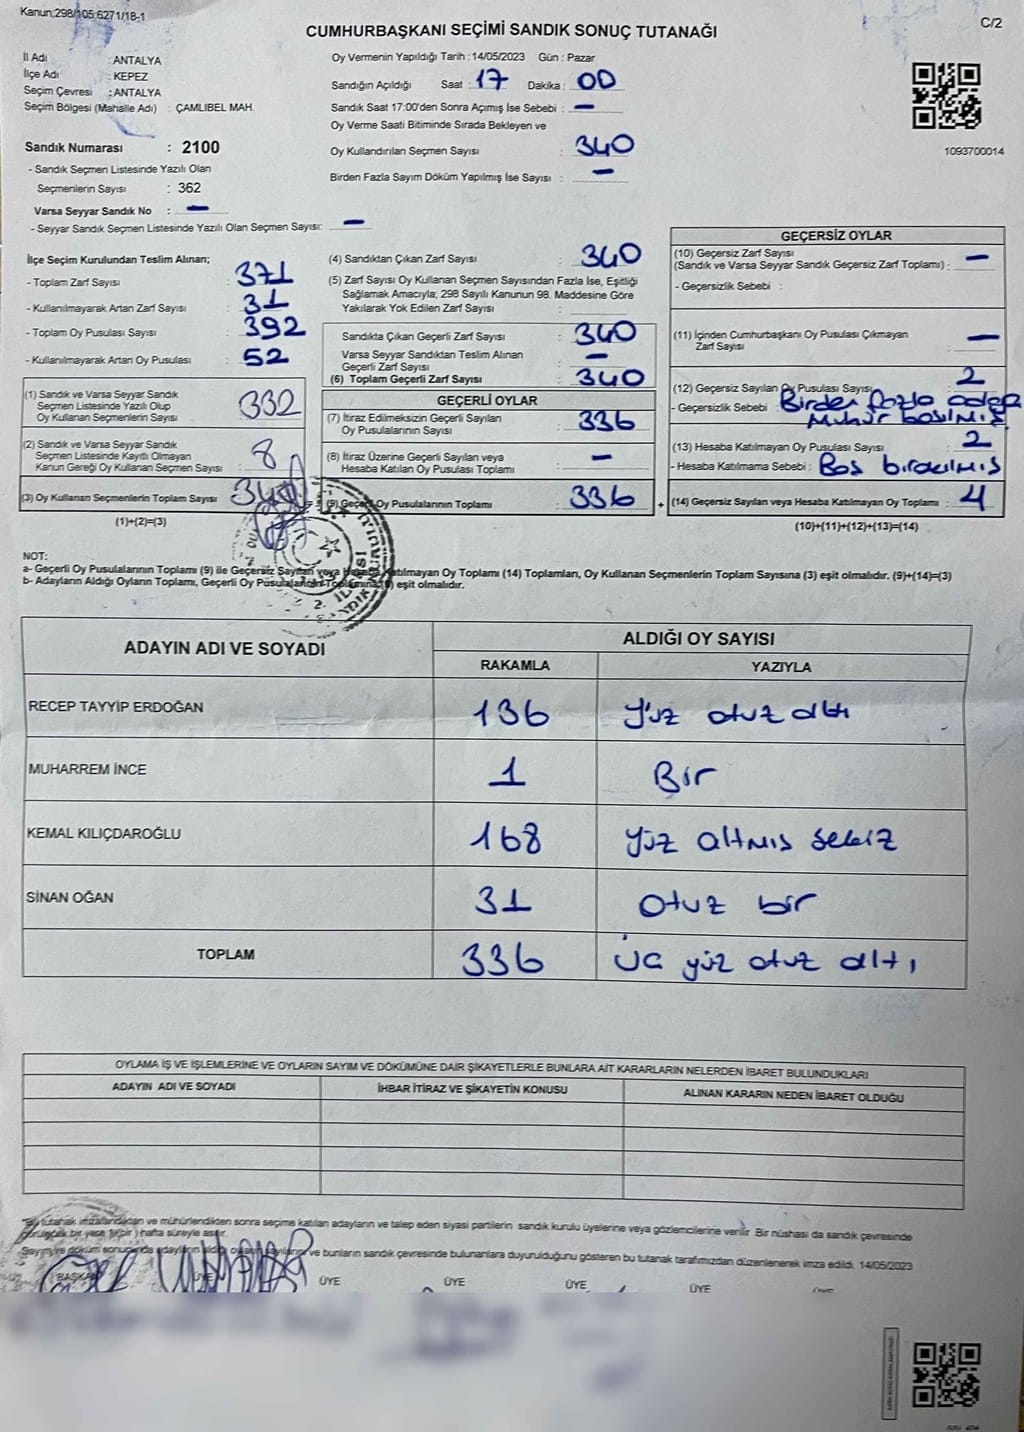 Kanun;298/105;6271/18-1
C/2
CUMHURBAŞKANI SEÇİMİ SANDIK SONUÇ TUTANAĞI
İl Adı : ANTALYA
İlçe Adı : KEPEZ
Seçim Çevresi : ANTALYA
Seçim Bölgesi (Mahalle Adı) : ÇAMLIBEL MAH.
Sandık Numarası : 2100
- Sandık Seçmen Listesinde Yazılı Olan
Seçmenlerin Sayısı : 362
Varsa Seyyar Sandık No : -
- Seyyar Sandık Seçmen Listesinde Yazılı Olan Seçmen Sayısı: -
Oy Vermenin Yapıldığı Tarih : 14/05/2023 Gün : Pazar
Sandığın Açıldığı Saat : 17 Dakika : 00
Sandık Saat 17:00'den Sonra Açımış İse Sebebi : -
Oy Verme Saati Bitiminde Sırada Bekleyen ve
Oy Kullandırılan Seçmen Sayısı : 340
Birden Fazla Sayım Döküm Yapılmış İse Sayısı : -
1093700014
İlçe Seçim Kurulundan Teslim Alınan;
- Toplam Zarf Sayısı : 371
- Kullanılmayarak Artan Zarf Sayısı : 31
- Toplam Oy Pusulası Sayısı : 392
- Kullanılmayarak Artan Oy Pusulası : 52
(1) Sandık ve Varsa Seyyar Sandık
Seçmen Listesinde Yazılı Olup
Oy Kullanan Seçmenlerin Sayısı : 332
(2) Sandık ve Varsa Seyyar Sandık
Seçmen Listesinde Kayıtlı Olmayan
Kanun Gereği Oy Kullanan Seçmen Sayısı : 8
(3) Oy Kullanan Seçmenlerin Toplam Sayısı : 340
(1)+(2)=(3)
(4) Sandıktan Çıkan Zarf Sayısı : 340
(5) Zarf Sayısı Oy Kullanan Seçmen Sayısından Fazla İse, Eşitliği
Sağlamak Amacıyla; 298 Sayılı Kanunun 98. Maddesine Göre
Yakılarak Yok Edilen Zarf Sayısı :
Sandıkta Çıkan Geçerli Zarf Sayısı : 340
Varsa Seyyar Sandıktan Teslim Alınan
Geçerli Zarf Sayısı : -
(6) Toplam Geçerli Zarf Sayısı : 340
GEÇERLİ OYLAR
(7) İtiraz Edilmeksizin Geçerli Sayılan
Oy Pusulalarının Sayısı : 336
(8) İtiraz Üzerine Geçerli Sayılan veya
Hesaba Katılan Oy Pusulası Toplamı : -
(9) Geçerli Oy Pusulalarının Toplamı : 336
+
GEÇERSİZ OYLAR
(10) Geçersiz Zarf Sayısı
(Sandık ve Varsa Seyyar Sandık Geçersiz Zarf Toplamı) : -
- Geçersizlik Sebebi :
(11) İçinden Cumhurbaşkanı Oy Pusulası Çıkmayan
Zarf Sayısı : -
(12) Geçersiz Sayılan Oy Pusulası Sayısı : 2
- Geçersizlik Sebebi : Birden fazla adaya
mühür basılmış
(13) Hesaba Katılmayan Oy Pusulası Sayısı : 2
- Hesaba Katılmama Sebebi : Boş bırakılmış
(14) Geçersiz Sayılan veya Hesaba Katılmayan Oy Toplamı : 4
(10)+(11)+(12)+(13)=(14)
NOT:
a- Geçerli Oy Pusulalarının Toplamı (9) ile Geçersiz Sayılan veya Hesaba Katılmayan Oy Toplamı (14) Toplamları, Oy Kullanan Seçmenlerin Toplam Sayısına (3) eşit olmalıdır. (9)+(14)=(3)
b- Adayların Aldığı Oyların Toplamı, Geçerli Oy Pusulalarının Toplamına (9) eşit olmalıdır.
ADAYIN ADI VE SOYADI ALDIĞI OY SAYISI
RAKAMLA YAZIYLA
RECEP TAYYİP ERDOĞAN 136 Yüz otuz altı
MUHARREM İNCE 1 Bir
KEMAL KILIÇDAROĞLU 168 Yüz altmış sekiz
SİNAN OĞAN 31 otuz bir
TOPLAM 336 üç yüz otuz altı
OYLAMA İŞ VE İŞLEMLERİNE VE OYLARIN SAYIM VE DÖKÜMÜNE DAİR ŞİKAYETLERLE BUNLARA AİT KARARLARIN NELERDEN İBARET BULUNDUKLARI
ADAYIN ADI VE SOYADI İHBAR İTİRAZ VE ŞİKAYETİN KONUSU ALINAN KARARIN NEDEN İBARET OLDUĞU
"Bu tutanak imzalandıktan ve mühürlendikten sonra seçime katılan adayların ve talep eden siyasi partilerin sandık kurulu üyelerine veya gözlemcilerine verilir. Bir nüshası da sandık çevresinde
görülecek bir yere 1(bir) hafta süreyle asılır.
Sayım ve döküm sonucunda adayların aldığı oyların ve bunların sandık çevresinde bulunanlara duyurulduğunu gösteren bu tutanak tarafımızdan düzenlenerek imza edildi. 14/05/2023
BAŞKAN ÜYE ÜYE ÜYE ÜYE ÜYE